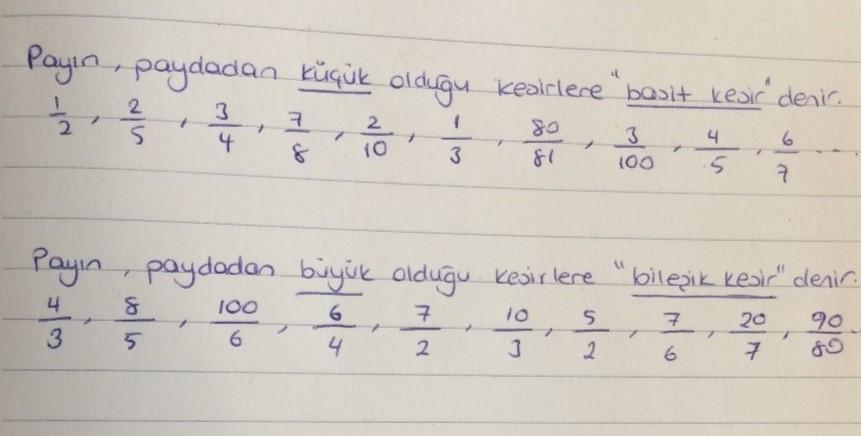 Payın, paydadan küçük olduğu kesirlere "basit kesir" denir.
1/2, 2/5, 3/4, 7/8, 2/10, 1/3, 80/81, 3/100, 4/5, 6/7 ...
Payın, paydadan büyük olduğu kesirlere "bileşik kesir" denir.
4/3, 8/5, 100/6, 6/4, 7/2, 10/3, 5/2, 7/6, 20/7, 90/80